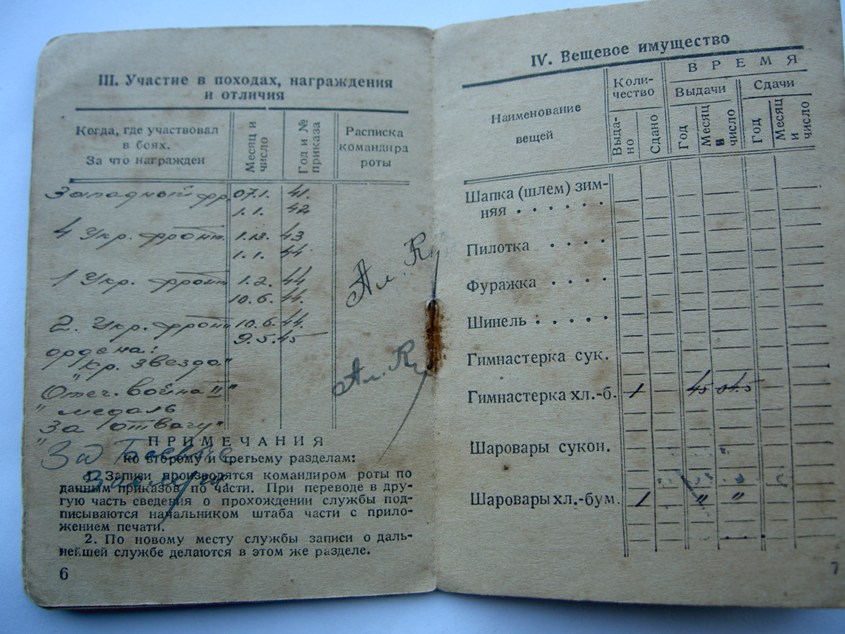 III. Участие в походах, награждения
и отличия
Когда, где участвовал
в боях.
За что награжден
Месяц и
число
Год и №
приказа
Расписка
командира
роты
Западный фр. 07.1. 41.
1.1. 42
4 Укр. фронт 1.12. 43
1.1. 44
1 Укр. фронт 1.2. 44
10.6. 44.
2. Укр. фронт 10.6. 44.
9.5. 45
ордена:
"Кр. Звезда"
Отеч. война II"
" медаль
За отвагу"
" За
ПРИМЕЧАНИЯ
ко второму и третьему разделам:
1. Записи производятся командиром роты по
данным приказов по части. При переводе в дру-
гую часть сведения о прохождении службы под-
писываются начальником штаба части с прило-
жением печати.
2. По новому месту службы записи о даль-
нейшей службе делаются в этом же разделе.
6
IV. Вещевое имущество
Наименование
вещей
Коли-
чество
ВРЕМЯ
Выдачи
Сдачи
Выда-
но
Сдано
Год
Месяц
и
число
Год
Месяц
и
число
Шапка (шлем) зим-
няя . . . . . .
Пилотка . . . .
Фуражка . . . .
Шинель . . . . .
Гимнастерка сук.
Гимнастерка хл.-б. 1 45
Шаровары сукон.
Шаровары хл.-бум. 1 " "
7